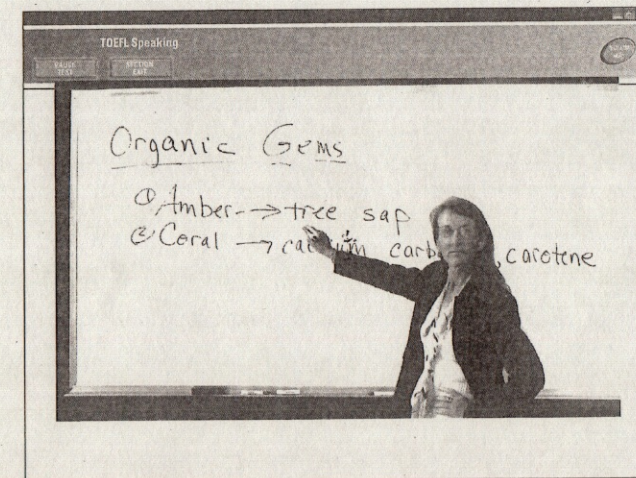 TOEFL Speaking
PAUSE TEST
SECTION EXIT
Organic Gems
① Amber --> tree sap
② Coral → calcium carb , carotene